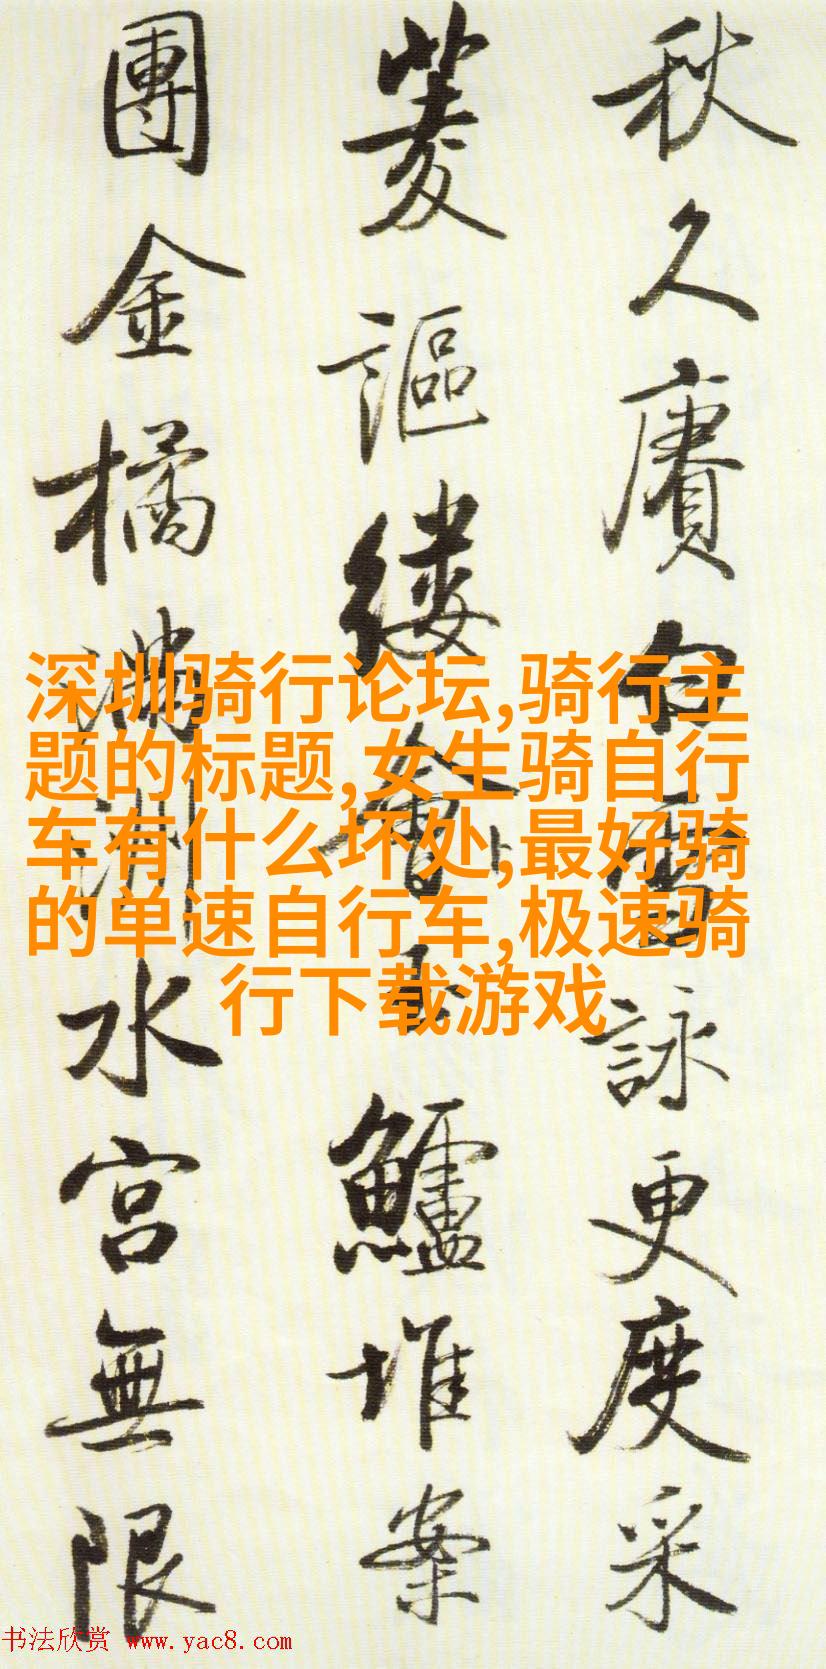 秋久賡白雪詠更度采
菱謳縷會玉鱸堆案
團金橘滿洲水宮無限
深圳骑行论坛,骑行主
题的标题,女生骑自行
车有什么坏处,最好骑
的单速自行车,极速骑
行下载游戏
书法欣赏 www.yac8.com